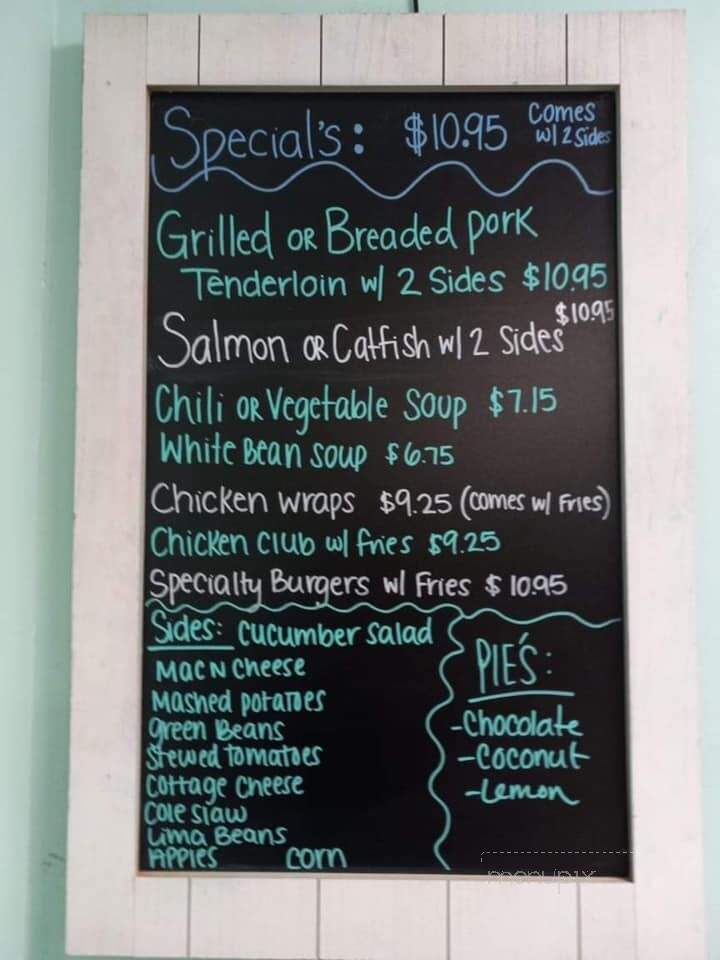 Special's: $10.95 Comes w/ 2 Sides
Grilled OR Breaded pork
Tenderloin w/ 2 Sides $10.95
Salmon OR Catfish w/ 2 Sides $10.95
Chili OR Vegetable Soup $7.15
White Bean soup $6.75
Chicken wraps $9.25 (comes w/ Fries)
Chicken club w/ fries $9.25
Specialty Burgers w/ Fries $10.95
Sides: cucumber salad
Mac N Cheese
Mashed potatoes
Green Beans
Stewed tomatoes
Cottage Cheese
Cole slaw
Lima Beans
Apples corn
PIE'S:
-Chocolate
-Coconut
-Lemon
menupix